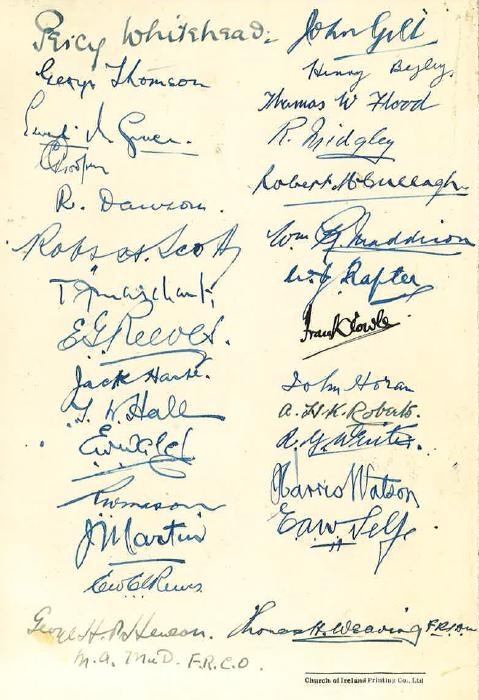 Percy Whitehead.
George Thomson
R. Dawson.
Robson. Scott
T. Marchant
E G Reeves.
Jack Harte.
T. W. Hall
Thomason
J Martin
Geo C Reeves
George H. P. Hewson.
M.A. Mus D. F.R.C.O.
John Gill
Henry Begley
Thomas W Flood
R. Midgley
Robert McCullagh.
Wm R. Maddison
W. J. Rafter
Frank Cowle
John Horan
A. H. K. Roberts.
Harris Watson
E a W Self
Thomas H. Weaving F.R.C.O.
Church of Ireland Printing Co., Ltd